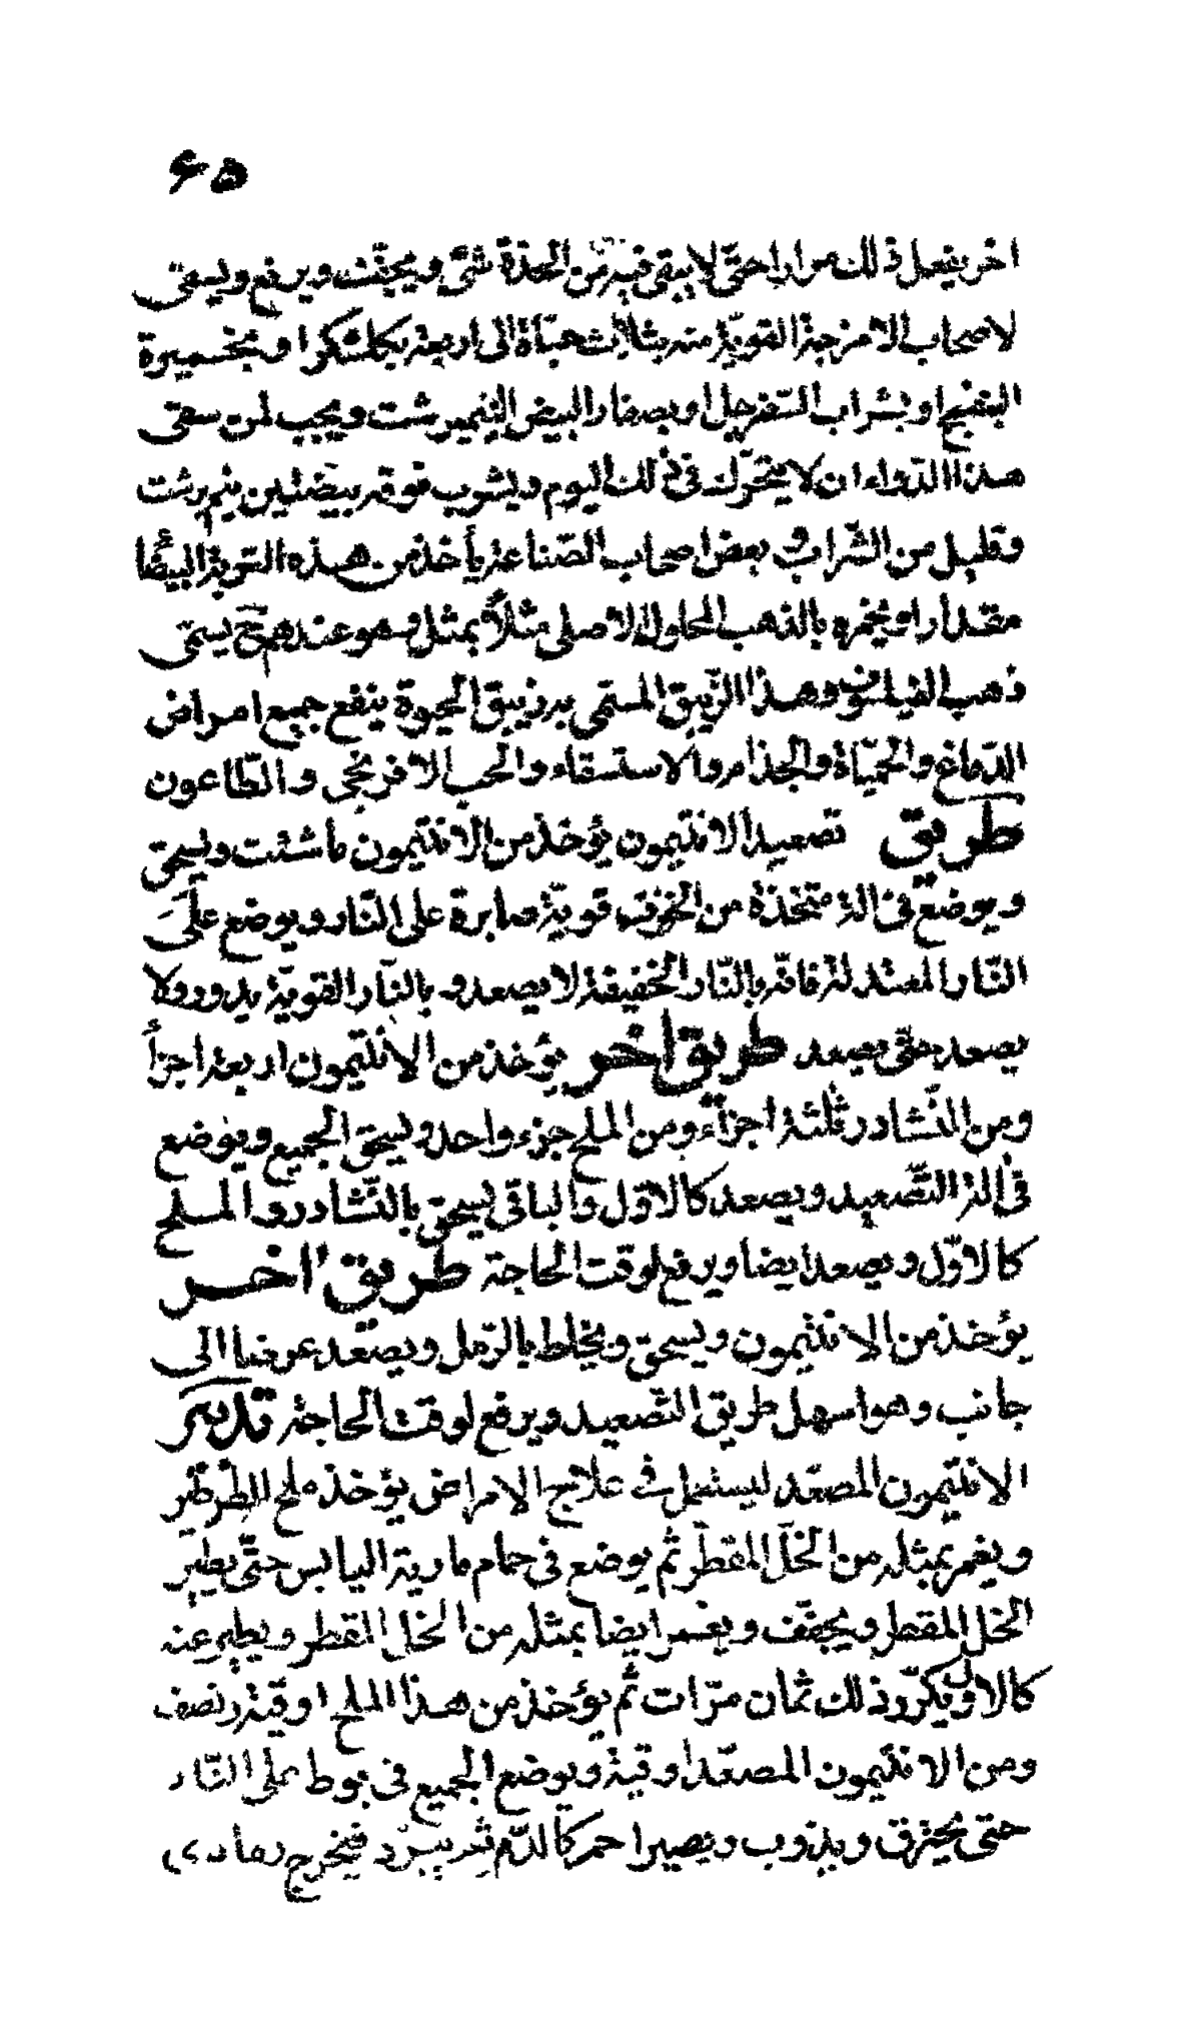 ۶۵
اخر يفعل ذلك مرارا حتّى لا يبقى فيه من الحدّة شئ ويجفّف ويرفع ويسقى
لاصحاب الامزجة القويّة منه بثلاث حبّاة الى اربعة بكلشكرا و بخميرة
البنفسج او بشراب السّفرجل او بصفار البيض النيمبرشت ويجب لمن سقى
هذا الدّواء ان لا يتحرّك فى ذلك اليوم ويشرب فوقه بيضتين نيمبرشت
وقليل من الشّراب و بعض اصحاب الصّناعة يأخذ من هذه التوية البيضا
مقدارا و يخمره بالذهب المحلول الاصلى مثلاً بمثل وهو عندهم ح يسمّى
ذهب الفيلسوف وهذا الزّيبق المسمّى بزيبق الحيوة ينفع جميع امراض
الدّماغ والحمّياة والجذام والاستسقاء والحب الافرنجى والطّاعون
طريق تصعيد الانتيمون يؤخذ من الانتيمون ما شئت ويسحق
ويوضع فى الة متّخذة من الخزف قويّة صابرة على النّار ويوضع على
النّار المعتدلة فانّه بالنّار الخفيفة لا يصعد و بالنّار القويّة يدور ولا
يصعد حتّى يصعد طريق اخر يؤخذ من الانتيمون اربعة اجزأ
ومن النّشادر ثلثة اجزاء ومن الملح جزء واحد ويسحق الجميع ويوضع
فى الة التّصعيد ويصعد كالاوّل والباقى يسحق بالنّشادر والملح
كالاوّل ويصعد ايضا ويرفع لوقت الحاجة طريق اخر
يؤخذ من الانتيمون ويسحق ويخلط بالرّمل ويصعّد عرضا الى
جانب وهو اسهل طريق التّصعيد ويرفع لوقت الحاجة تدبير
الانتيمون المصعّد ليستعمل فى علاج الامراض يؤخذ ملح الطّرطير
ويغمر بمثله من الخلّ المقطّر ثم يوضع فى حمام مارية اليابس حتّى يطير
الخل المقطر ويجفّف ويغمر ايضا بمثله من الخل المقطر ويطير عنه
كالاول ويكرّر ذلك ثمان مرّات ثم يؤخذ من هذا الملح اوقيّة ونصف
ومن الانتيمون المصعّد اوقية ويوضع الجميع فى بوط على النّار
حتى يحترق ويذوب ويصير احمر كالدّم ثم يبرّد فيخرج رمادى